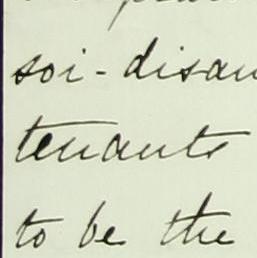 soi-disan
tenants
to be the